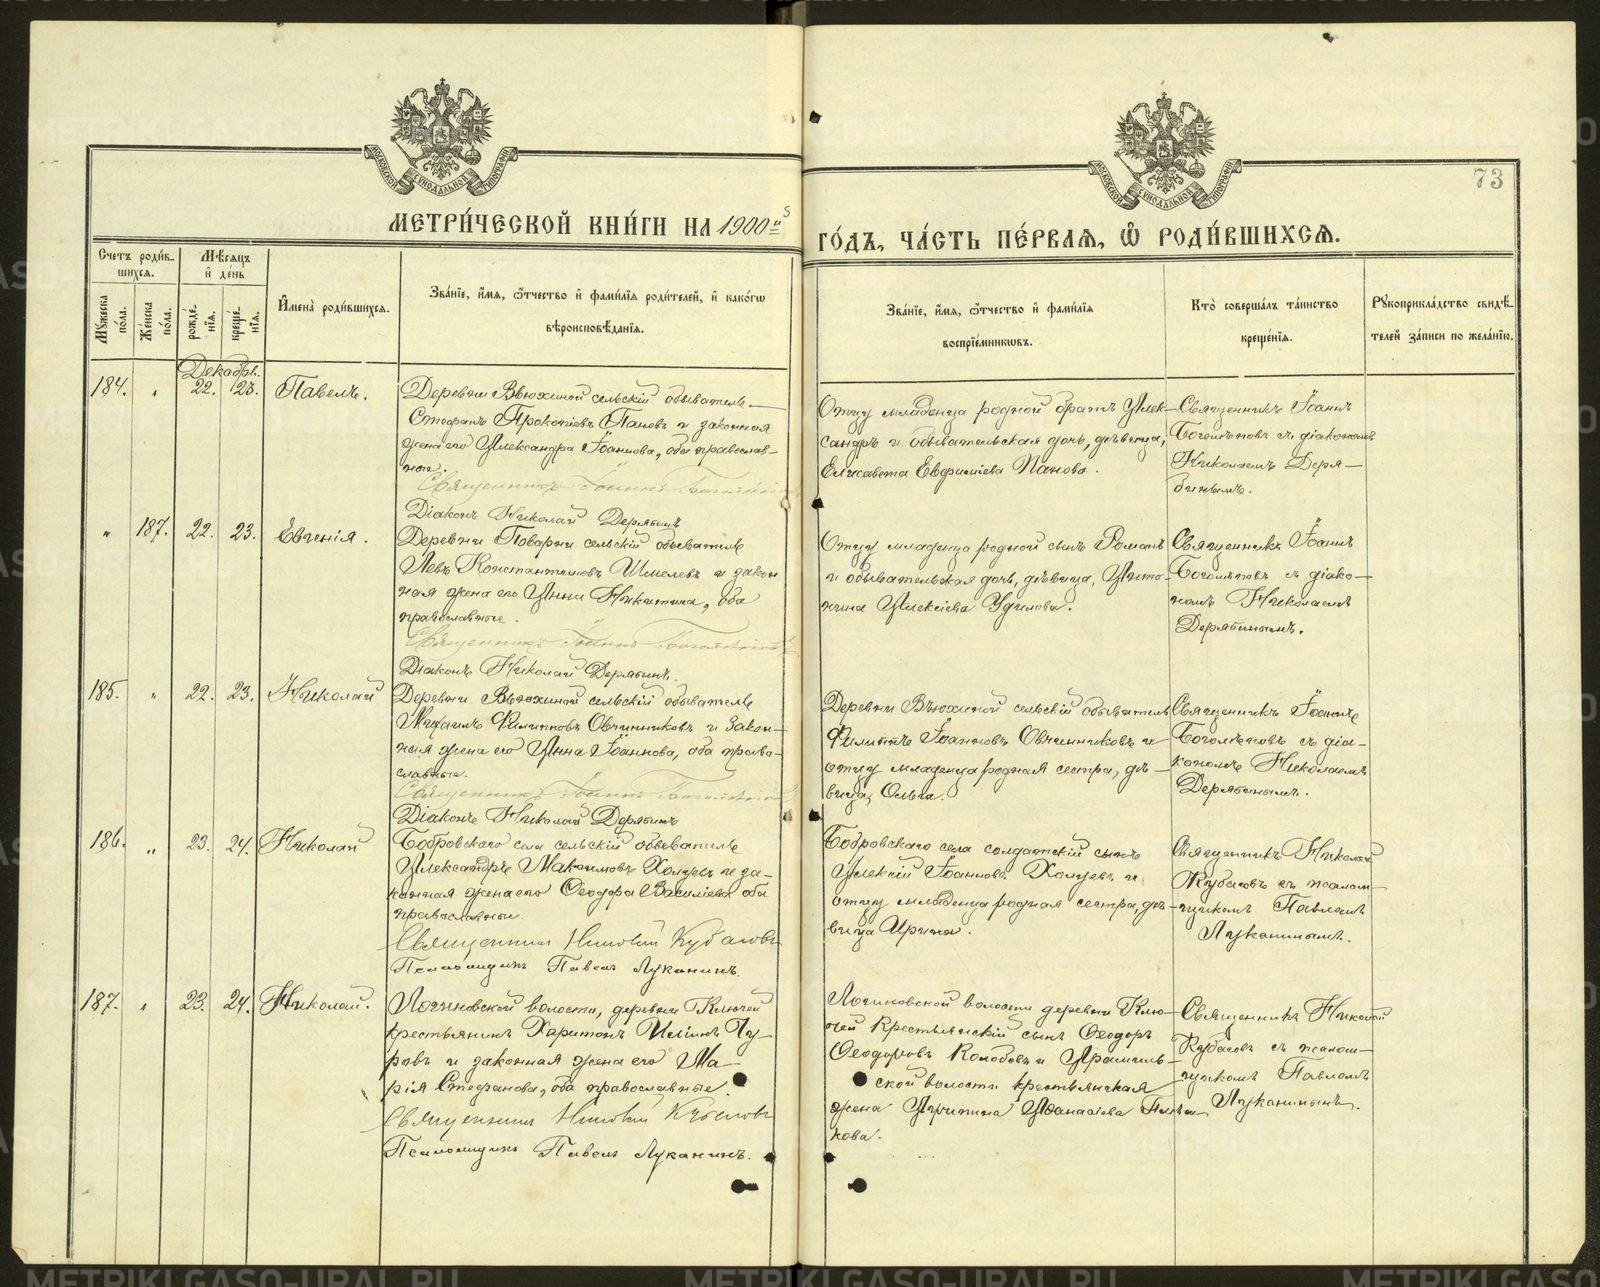 МЕТРИЧЕСКОЙ КНИГИ НА 1900й
ГОДЪ, ЧАСТЬ ПЕРВАЯ, Ѿ РОДИВШИХСЯ.
73
Счетъ родив-
шихся.
Мѣсяцъ
и день
Мужеска пола.
Женска пола.
рожде-
нїя.
креще-
нїя.
Имена родившихся.
Званїе, имя, ѿтчество и фамилїя родителей, и какогѡ
вѣроисповѣданїя.
Званїе, имя, ѿтчество и фамилїя
воспрїемникѡвъ.
Кто совершалъ таинство
крещенїя.
Рукоприкладство свидѣ-
телей записи по желанїю.
Декабрь.
184. " 22. 23. Павелъ.
Деревни Вьюхиной сельскій обыватель
Стефанъ Прокопіевъ Пановъ и законная
жена его Александра Іоаннова, оба православ-
ные.
Священникъ Іоаннъ Боголѣповъ
Діаконъ Николай Дерябинъ
Отцу младенца родной братъ Алек-
сандръ и обывательская дочь, дѣвица,
Елисавета Евфиміева Панова.
Священникъ Іоаннъ
Боголѣповъ съ діакономъ
Николаемъ Деря-
бинымъ.
" 187. 22. 23. Евгенія.
Деревни Поварни сельскій обыватель
Левъ Константиновъ Шмелевъ и закон
ная жена его Анна Никитина, оба
православные.
Священникъ Іоаннъ Боголѣповъ
Діаконъ Николай Дерябинъ.
Отцу младенца родной сынъ Романъ
и обывательская дочь, дѣвица, Анто-
нина Алексіева Удилова.
Священникъ Іоаннъ
Боголѣповъ съ діако-
номъ Николаемъ
Дерябинымъ.
185. " 22. 23. Николай
Деревни Вьюхиной сельскій обыватель
Михаилъ Филипповъ Овчинниковъ и закон-
ная жена его Анна Іоаннова, оба право-
славные.
Священникъ Іоаннъ Боголѣповъ
Діаконъ Николай Дерябинъ
Деревни Вьюхиной сельскій обыватель
Филиппъ Іоанновъ Овчинниковъ и
отцу младенца родная сестра, дѣ-
вица, Ольга.
Священникъ Іоаннъ
Боголѣповъ съ діа-
кономъ Николаемъ
Дерябинымъ.
186. " 23. 24. Николай
Бобровскаго села сельскій обыватель
Александръ Максимовъ Холуевъ и за-
конная жена его Ѳеодора Василіева оба
православные
Священникъ Николай Кубасовъ
Псаломщикъ Павелъ Луканинъ.
Бобровскаго села солдатскій сынъ
Алексій Іоанновъ Холуевъ и
отцу младенца родная сестра, дѣ-
вица Ирина.
Священникъ Николай
Кубасовъ съ псалом-
щикомъ Павломъ
Луканинымъ.
187. " 23. 24. Николай.
Логиновской волости, деревни Ключей
крестьянинъ Харитонъ Иліинъ Чу-
ровъ и законная жена его Ма-
рія Стефанова, оба православные
Священникъ Николай Кубасовъ
Псаломщикъ Павелъ Луканинъ.
Логиновской волости деревни Клю-
чей крестьянскій сынъ Ѳеодоръ
Ѳеодоровъ Колобовъ и Арамиль-
ской волости крестьянская
жена Агрипина Аѳанасіева
Священникъ Николай
Кубасовъ съ псалом-
щикомъ Павломъ
Луканинымъ.